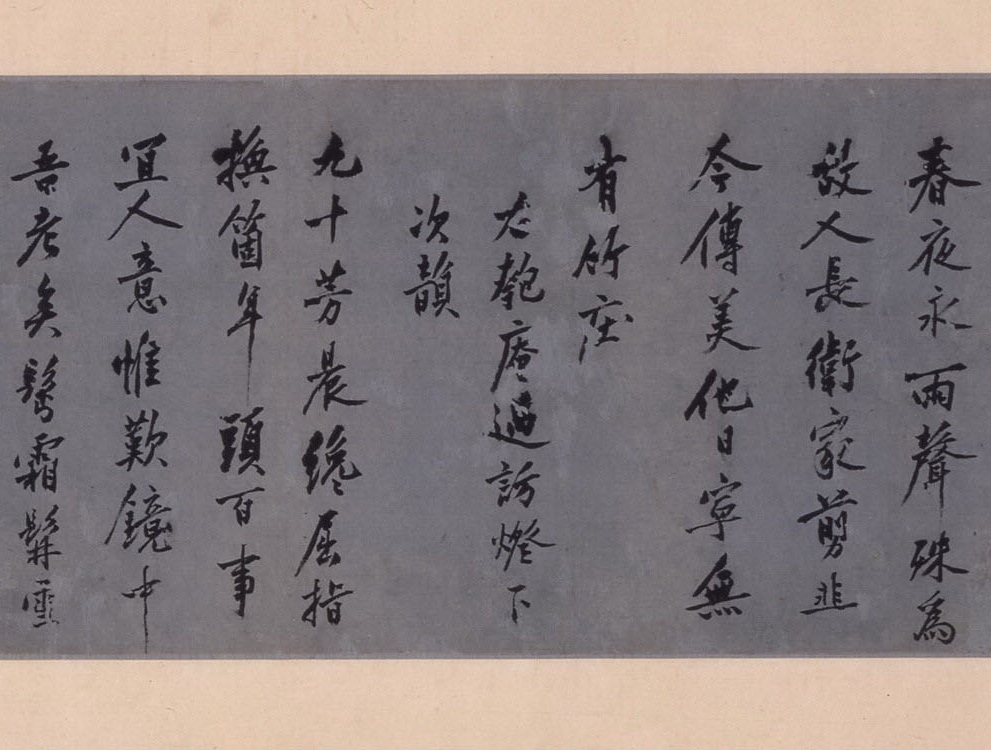 春夜永雨聲殊為
故人長衛家剪韭
今傳美他日寧無
有竹庄
右匏庵過訪燈下
次韻
九十芳晨纔屈指
撫箇年頭百事
宜人意惟歎鏡中
吾老矣鬢霜髯雪